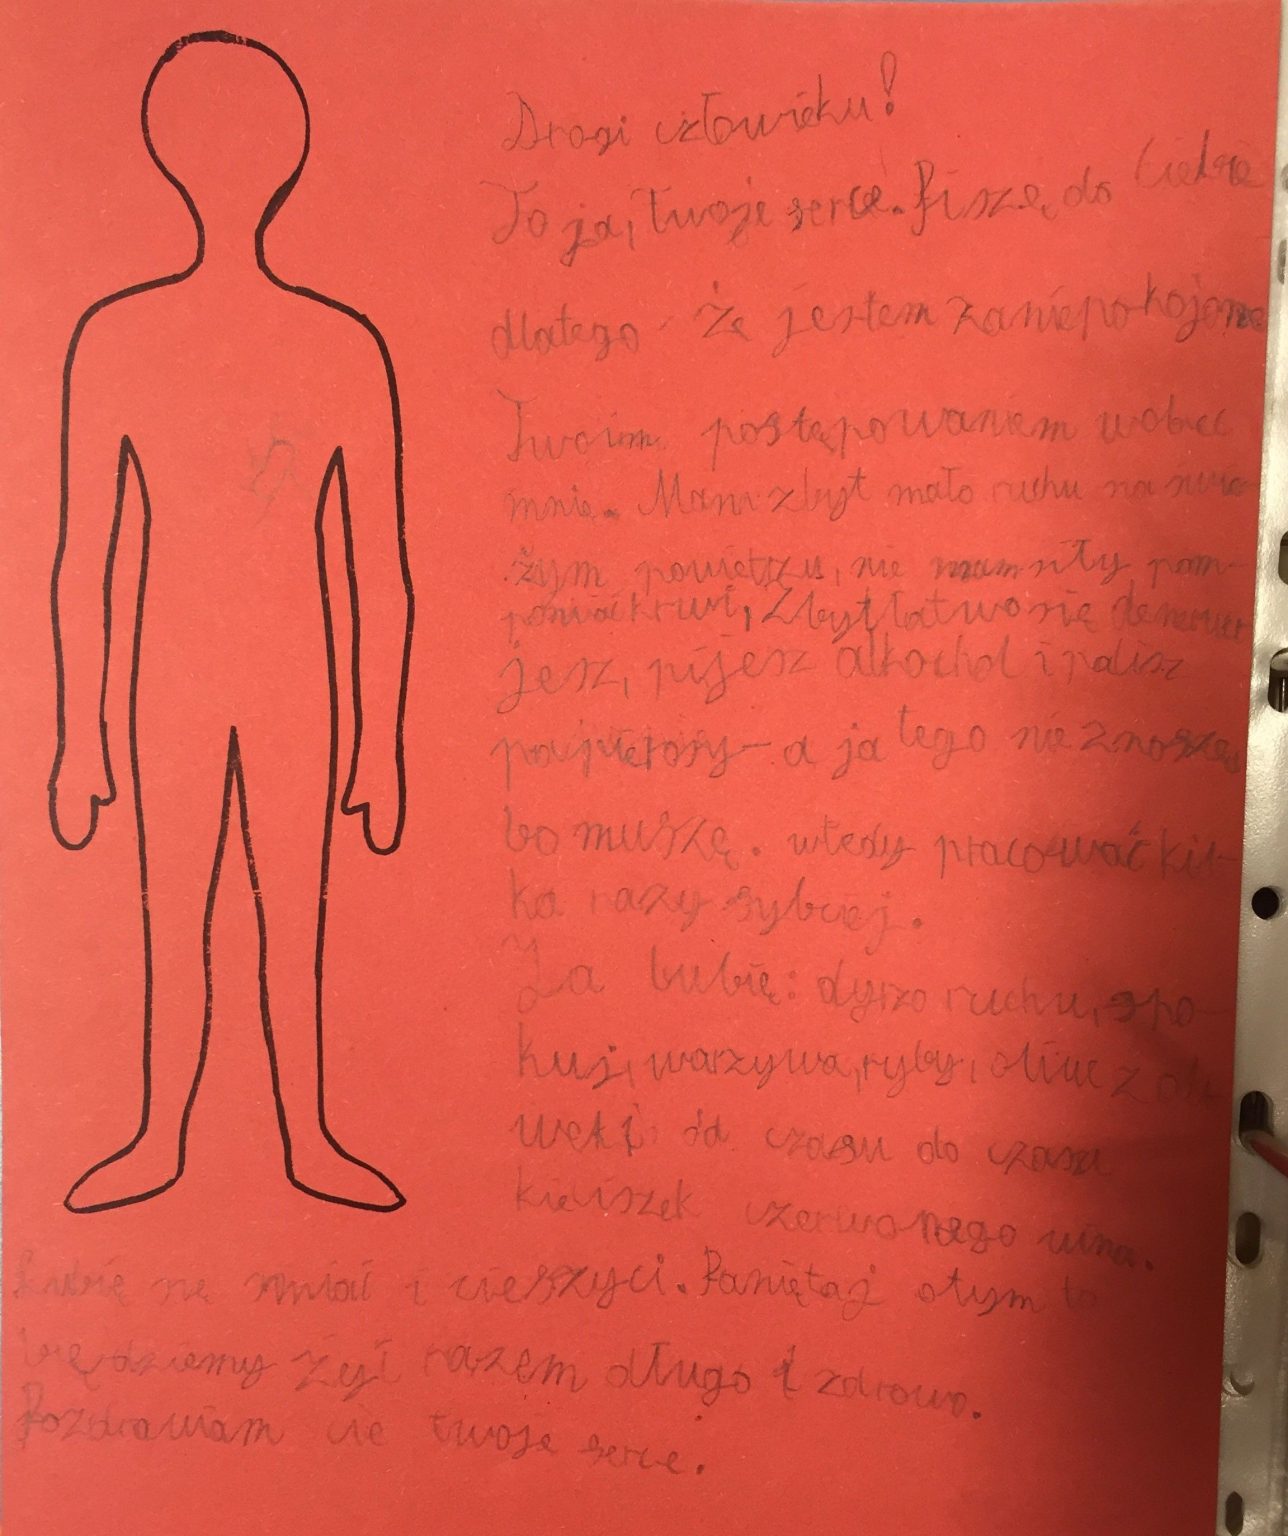 Drogi człowieku!
To ja, Twoje serce. Piszę do Ciebie
dlatego że jestem zaniepokojone
Twoim postępowaniem wobec
mnie. Mam zbyt mało ruchu na świe-
żym powietrzu, nie mam siły pom-
pować krwi, Zbyt łatwo się denerwu
jesz, pijesz alkochol i palisz
papierosy - a ja tego nie znoszę,
bo muszę. wtedy pracować kil-
ka razy sybciej.
Ja lubię: dyrzo ruchu, spo-
kuj, warzywa, ryby, oliwę z oli
wek i od czasu do czasu
kieliszek czerwonego wina.
Lubię się śmiać i cieszyci. Pamiętaj otym to
będziemy żyć razem długo i zdrowo.
Pozdrawiam cie twoje serce.